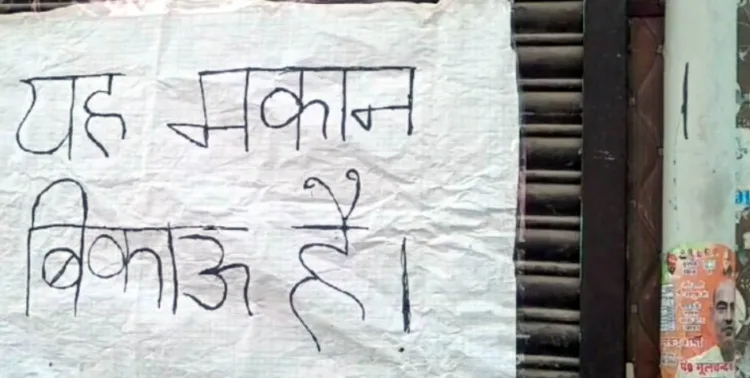 यह मकान
बिकाऊ है।
पं० मूलचन्द